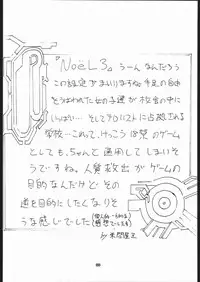 『NOëL3』うーんなんだろう
この設定がまいりますね。手足の自由
をうばわれた女の子達が校舎の中に
いっぱい… そしてテロリストに占領される
学校…これって、けっこうH系のゲーム
としても、ちゃんと通用してしまいそ
うですね。人質救出がゲームの
目的なんだけど その
道を目的にしたくなりそ
うな感じでした